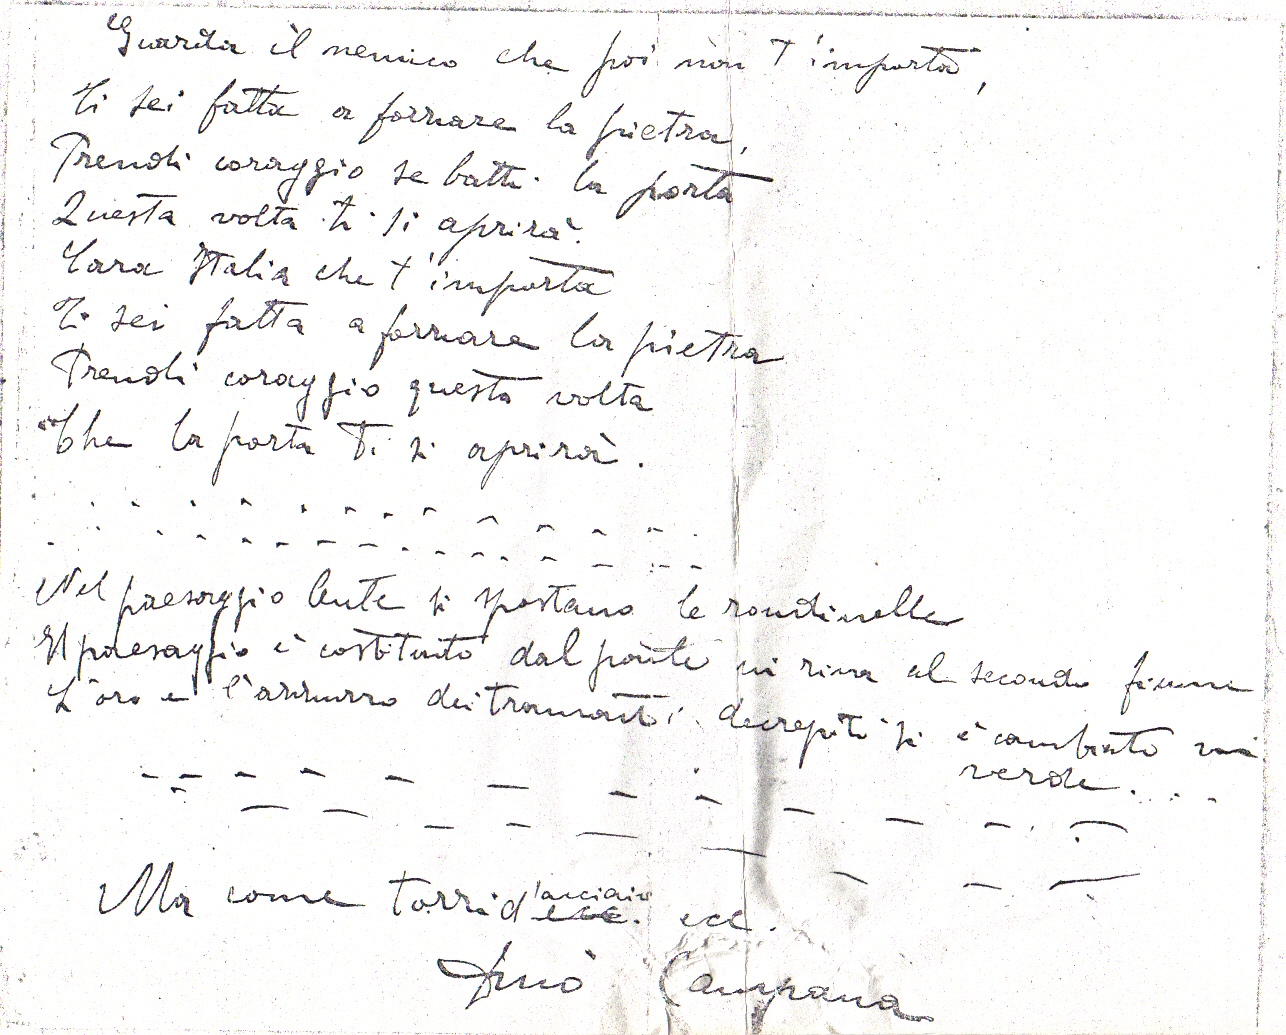 Guarda il nemico che poi non t'importa,
Ti sei fatta a fornare la pietra,
Prendi coraggio se batti la porta
Questa volta ti si aprirà.
Cara Italia che t'importa
Ti sei fatta a fornare la pietra
Prendi coraggio questa volta
Che la porta ti si aprirà.
Nel paesaggio lente si spostano le rondinelle
Il paesaggio è costituito dal ponte in riva al secondo fiume
L'oro e l'azzurro dei tramonti decrepiti si è cambiato in
verde....
Ma come torri d'acciaio
ecc. ecc.
Dino Campana